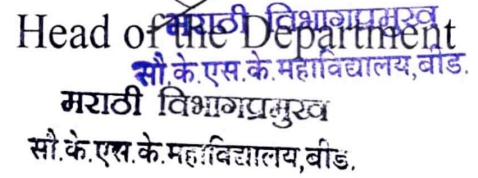 Head of the Department
मराठी विभागप्रमुख
सौ.के.एस.के.महाविद्यालय,बीड.
मराठी विभागप्रमुख
सौ.के.एस.के.महाविद्यालय,बीड.